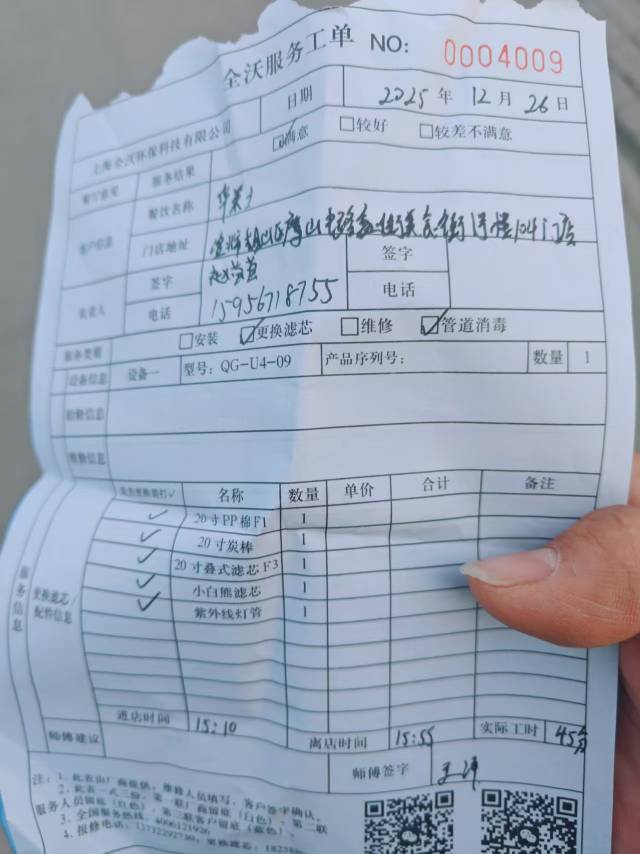 全沃服务工单 NO: 0004009
上海全沃环保科技有限公司 日期 2025 年 12 月 26 日
客厅意见 服务结果 ☑满意 □较好 □较差不满意
客户信息 餐饮名称 华莱士
门店地址 104门店
签字 签字
电话 15956718755 电话
服务类型 □安装 ☑更换滤芯 □维修 ☑管道消毒
设备信息 设备一 型号: QG-U4-09 产品序列号: 数量 1
检修信息
维修信息
服务信息 更换滤芯/配件信息
是否更换请打✓ 名称 数量 单价 合计 备注
✓ 20寸PP棉F1 1
✓ 20寸炭棒 1
✓ 20寸叠式滤芯F3 1
✓ 小白熊滤芯 1
✓ 紫外线灯管 1
进店时间 15:10 离店时间 15:55 实际工时 45分
师傅建议 师傅签字
注: 1、此客由厂商提供, 维修人员填写, 客户签字确认。
2、此表一式三份, 第一联厂商留底(白色), 第二联
服务人员留底(红色), 第三联客户留底(蓝色)。
3、全国服务热线: 4006121926
4、报修电话: 13732292730,